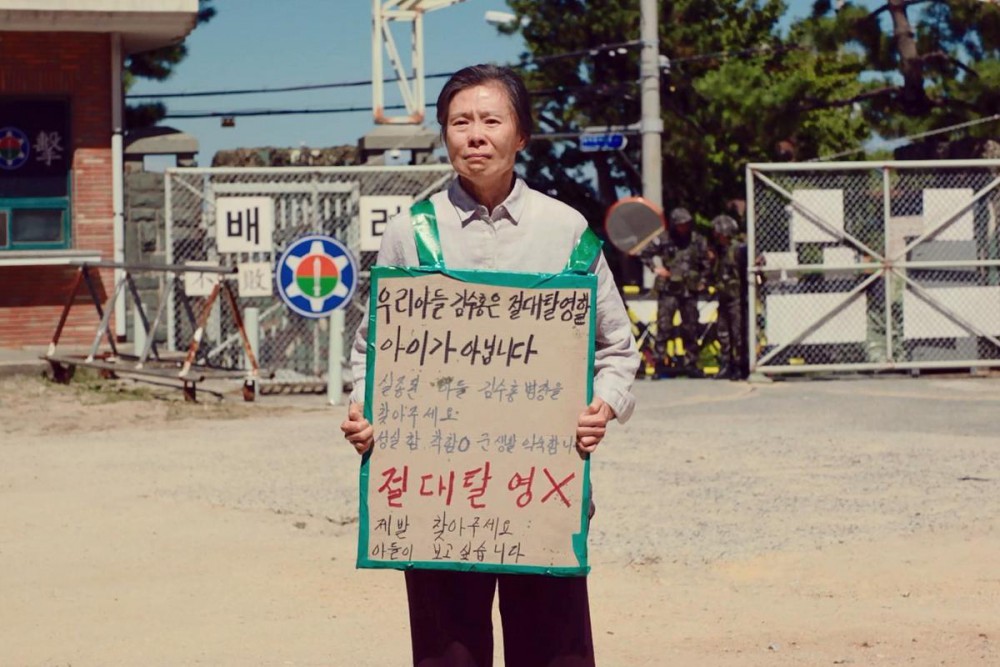 擊
배
不
敗
우리아들 김수홍은 절대탈영할
아이가 아닙니다
실종된 아들 김수홍 병장을
찾아주세요
성실함 착함 군생활 익숙합니
절대탈영X
제발 찾아주세요
아들이 보고싶습니다